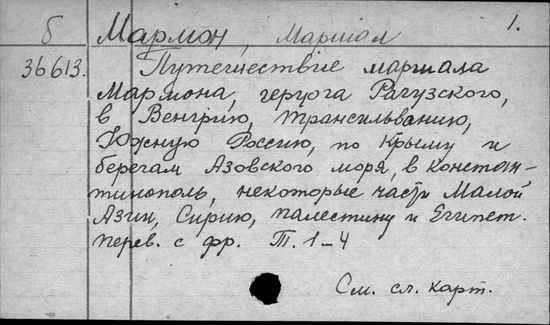 б Мармон, Маршал 1.
36613. Путешествие маршала
Мармона, герцога Рагузского,
в Венгрию, Трансильванию,
Южную Россию, по Крыму и
берегам Азовского моря, в Констан-
тинополь, некоторые части Малой
Азии, Сирию, Палестину и Египет.
перев. с фр. Т. 1-4
См. сл. карт.